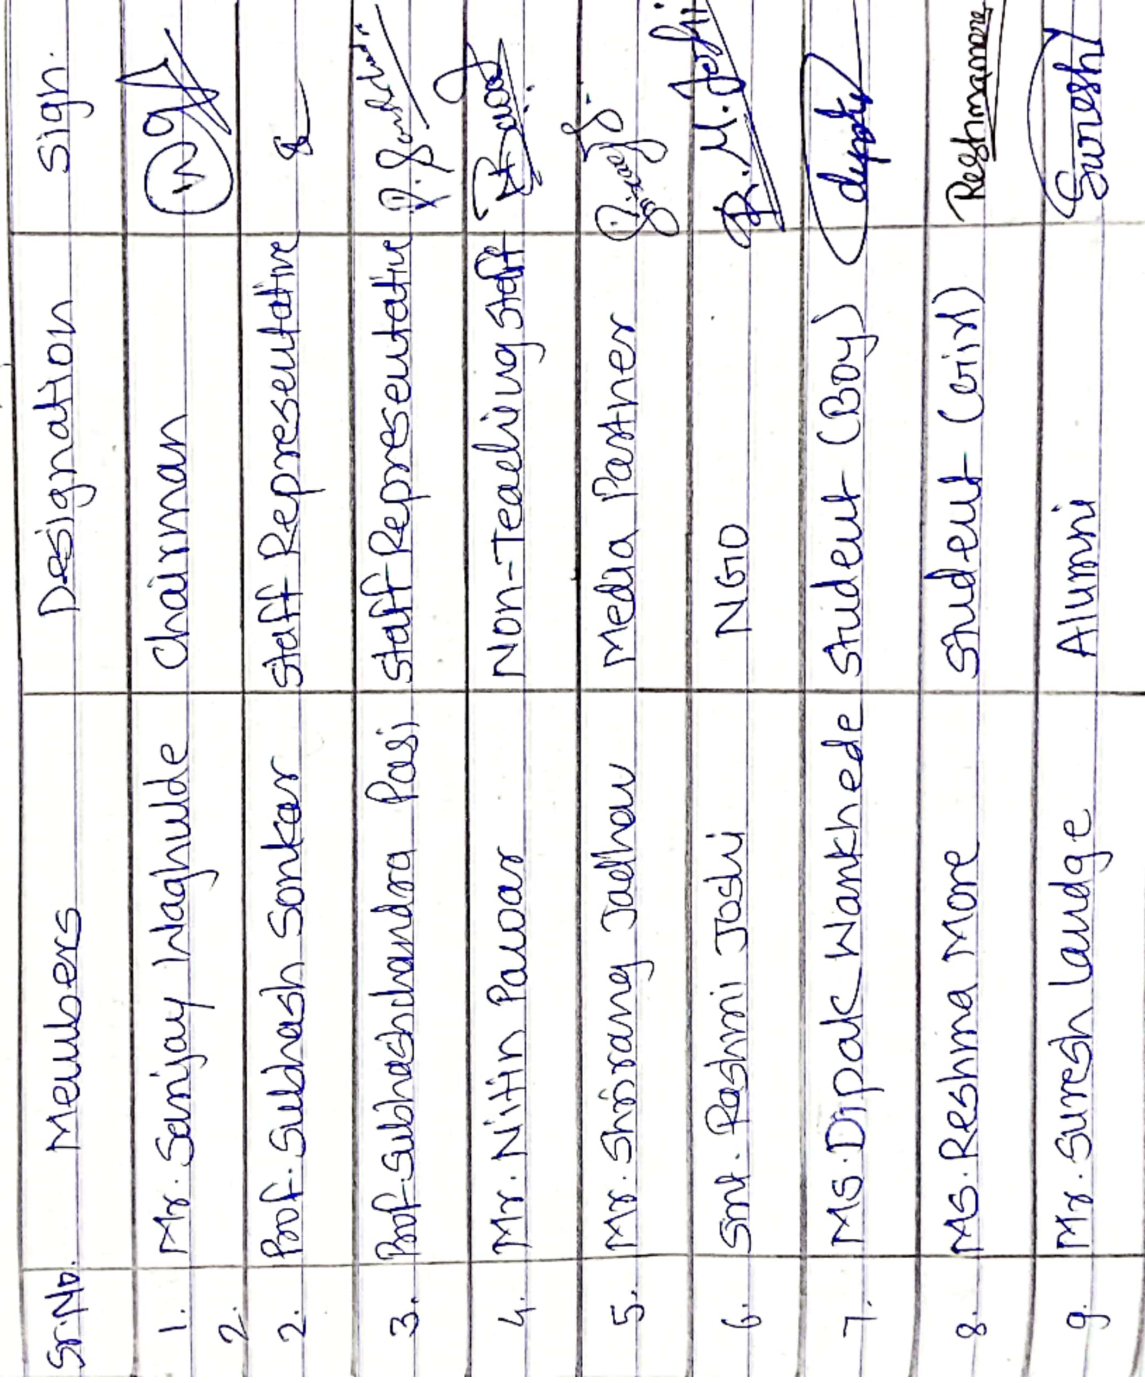 Sr.No. Members Designation Sign.
1. Mr. Sanjay Waghulde Chairman
2.
2. Prof. Subhash Sonkar Staff Representative
3. Prof. Subhashchandra Pasi Staff Representative
4. Mr. Nitin Pawar Non-Teaching Staff
5. Mr. Shrirang Jadhav Media Partner
6. Smt. Rashmi Joshi NGO R. M. Joshi
7. Ms. Dipak Wankhede Student (Boy)
8. Ms. Reshma More Student (Girl) Reshmamore
9. Mr. Suresh Landge Alumni Suresh